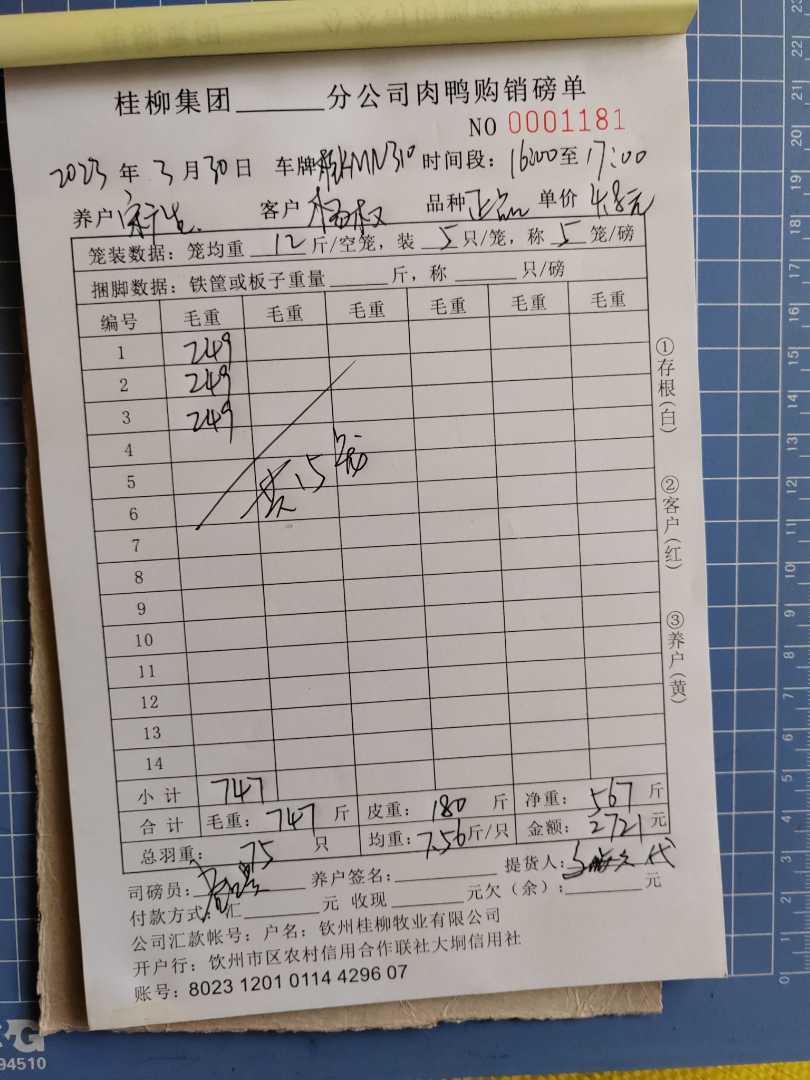 桂柳集团______分公司肉鸭购销磅单
NO 0001181
2023 年 3 月 30 日 车牌 MN310 时间段: 16:00 至 17:00
养户 客户 杨权 品种 正品 单价 4.8元
笼装数据: 笼均重 12 斤/空笼, 装 5 只/笼, 称 5 笼/磅
捆脚数据: 铁筐或板子重量______斤, 称______只/磅
编号 毛重 毛重 毛重 毛重 毛重 毛重
1 249
2 249
3 249
4
5
共15笼
6
7
8
9
10
11
12
13
14
小计 747
合计 毛重: 747 斤 皮重: 180 斤 净重: 567 斤
总羽重: 75 只 均重: 7.56 斤/只 金额: 2721 元
司磅员: 养户签名: 提货人: 代
付款方式: 汇______元 收现______元欠(余):______元
公司汇款帐号: 户名: 钦州桂柳牧业有限公司
开户行: 钦州市区农村信用合作联社大垌信用社
账号: 8023 1201 0114 4296 07
①存根(白)
②客户(红)
③养户(黄)
94510
0
1
2
3
4
5
6
7
8
9
10
11
12
13
15
16
17
18
19
20
21
22